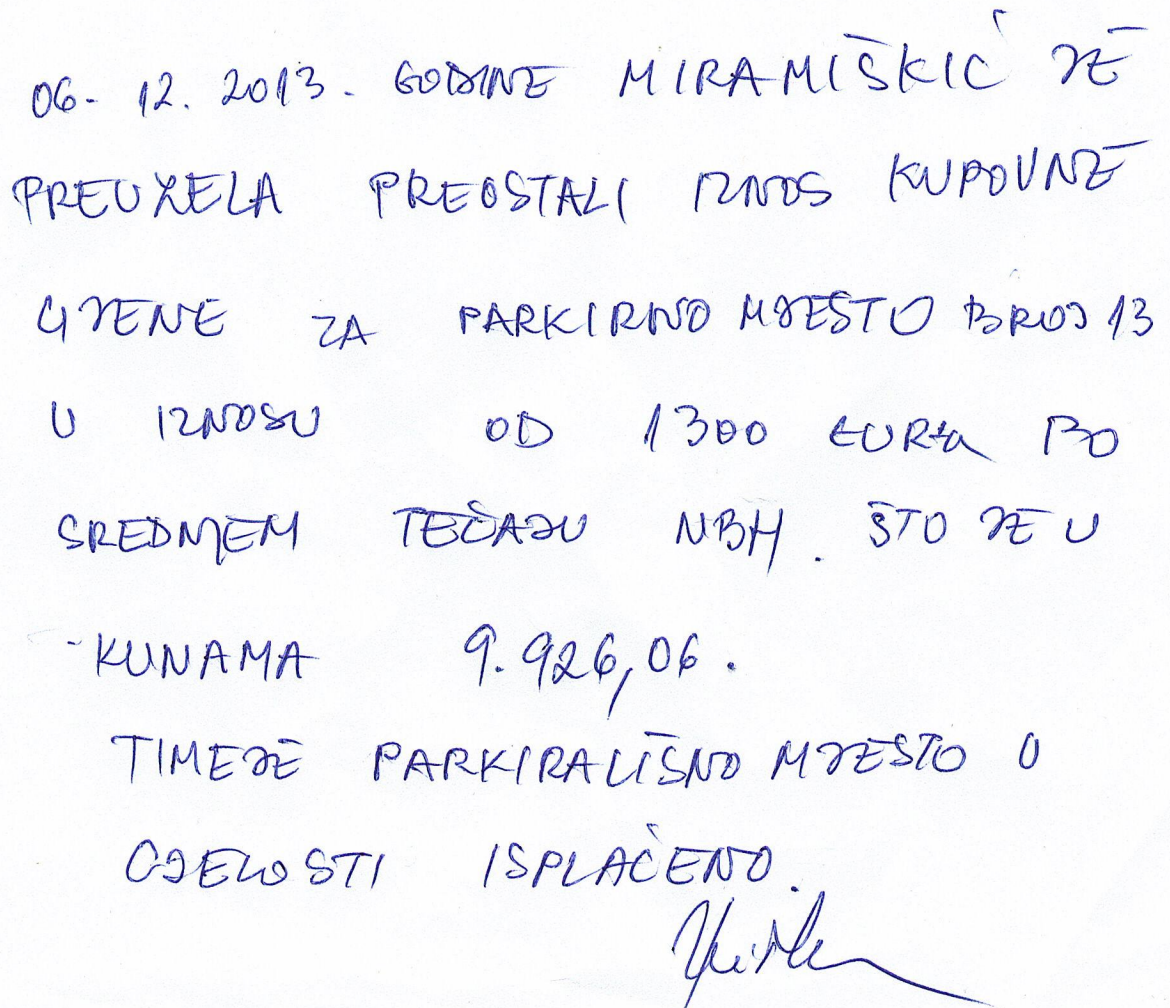 06. 12. 2013. GODINE MIRA MIŠKIĆ JE
PREUZELA PREOSTALI IZNOS KUPOVNE
CIJENE ZA PARKIRNO MJESTO BROJ 13
U IZNOSU OD 1300 EURA PO
SREDNJEM TEČAJU NBH. ŠTO JE U
KUNAMA 9.926,06.
TIME JE PARKIRALIŠNO MJESTO U
CJELOSTI ISPLAĆENO.